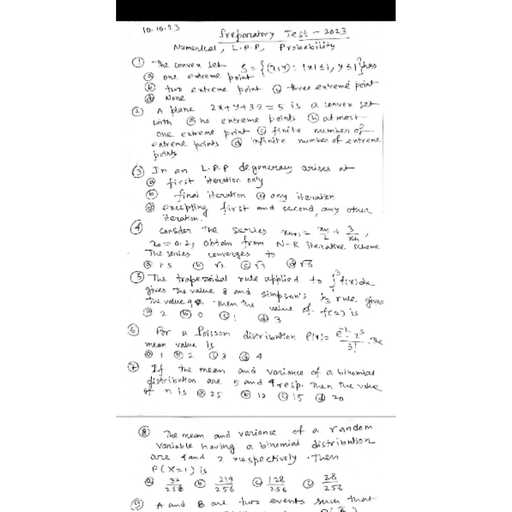 10.10.23
Preparatory Test - 2023
Numerical, L.P.P, Probability
① The convex set S = {(x,y): |x| ≤ 1, y ≤ 1} has
ⓐ one extreme point
ⓑ two extreme point ⓒ three extreme point
ⓓ None
② A plane 2x+y+3z = 5 is a convex set
with ⓐ no extreme points ⓑ at most
one extreme point ⓒ finite number of
extreme points ⓓ infinite number of extreme
points
③ In an L.P.P degeneracy arises at
ⓐ first iteration only
ⓑ final iteration ⓒ any iteration
ⓓ excepting first and second, any other
iteration.
④ Consider the series xn+1 = xn/2 + 3/xn,
x0 = 0.2, obtain from N-R iterative scheme.
The series converges to
ⓐ 1.5 ⓑ √2 ⓓ √3
⑤ The trapezoidal rule applied to f(x)dx
gives the value 8 and simpson's 1/3 rule gives
the value Then the value of f(2) is
ⓐ 2 ⓑ 0 ⓒ 1 ⓓ 3
⑥ For a Poisson distribution The
mean value is
ⓐ 1 ⓑ 2 ⓒ 3 ⓓ 4
⑦ If the mean and variance of a binomial
distribution are 5 and 4 resp. Then the value
of n is ⓐ 25 ⓑ 12 ⓒ 15 ⓓ 20
⑧ The mean and variance of a random
variable having a binomial distribution
are 4 and 2 respectively. Then
P(X=1) is
ⓐ ⓑ 219/256 ⓒ 128/256 ⓓ 28/256
⑨ A and B are two events such that